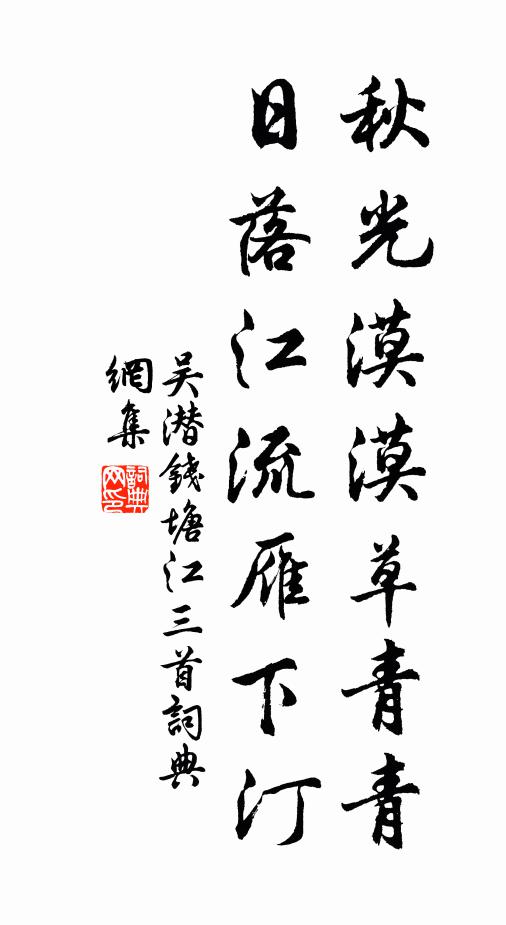 秋光漠漠草青青
日落江流雁下汀
吴潛錢塘江三首詞典
網集
詞典